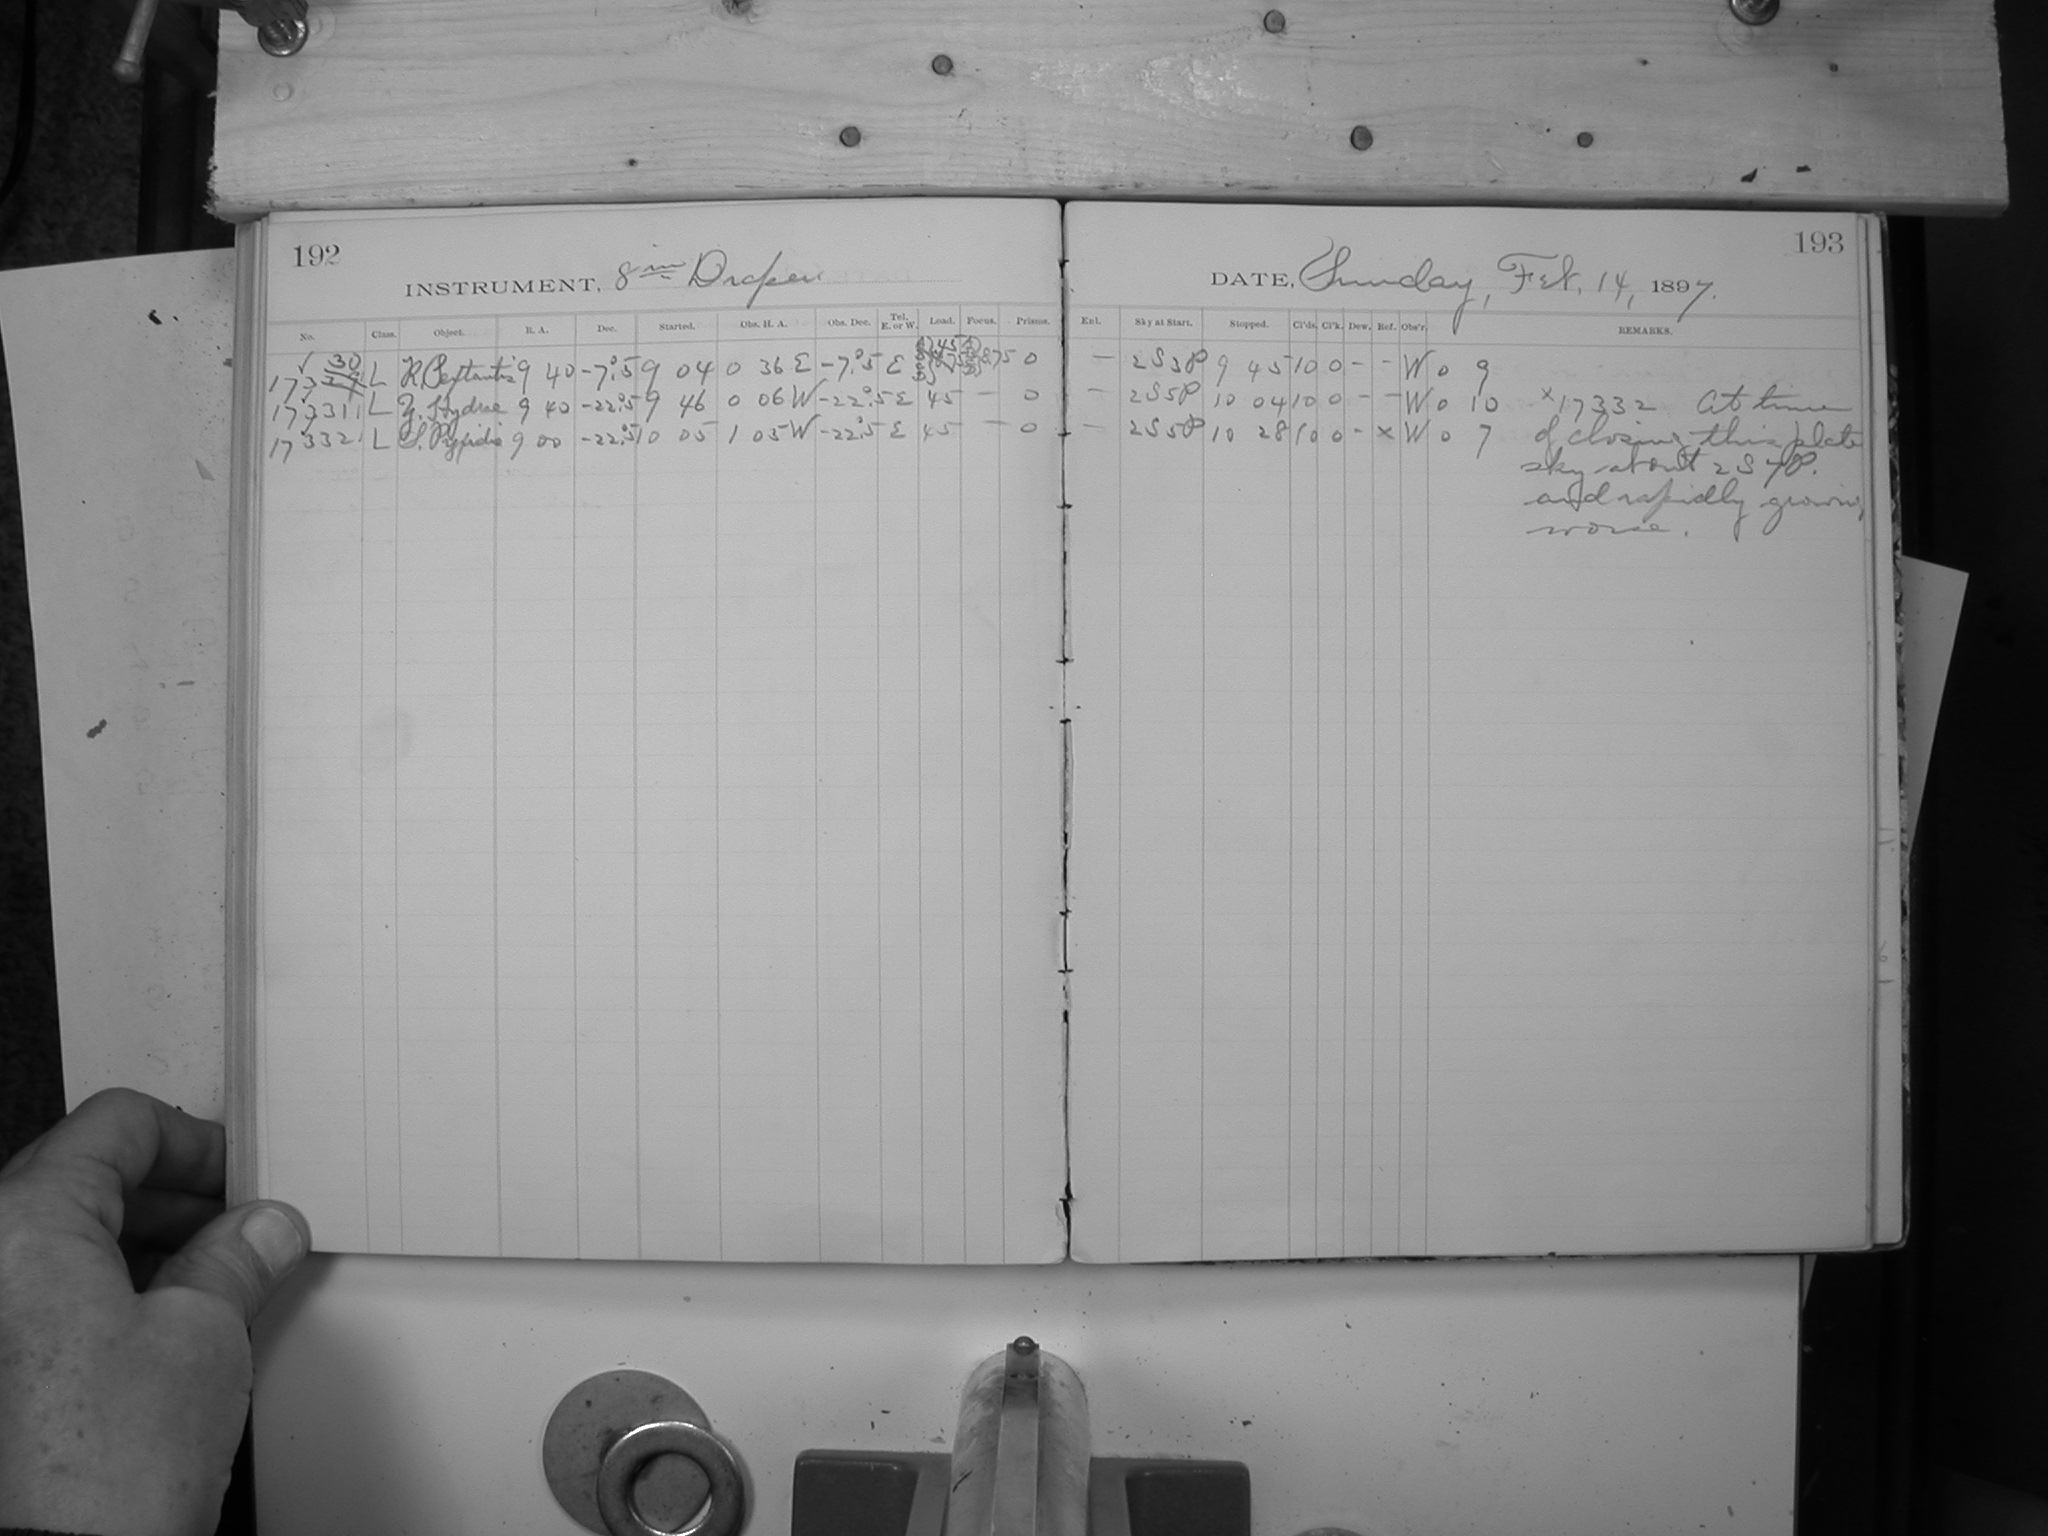 192
INSTRUMENT, 8 in Draper
No. Class. Object. R. A. Dec. Started. Obs. H. A. Obs. Dec. Tel. E. or W. Load. Focus. Prisms.
30
173 L R. Sextantis 9 40 -7°.5 9 04 0 36 E -7°.5 E 8.75 0
17331 L Y. Hydrae 9 40 -22°.5 9 46 0 06 W -22°.5 E 45 — 0
17332 L S. Pyxidis 9 00 -22°.5 10 05 1 05 W -22°.5 E 45 — 0
193
DATE, Sunday, Feb. 14, 1897.
Enl. Sky at Start. Stopped. Cl'ds. Cl'k. Dew. Ref. Obs'r. REMARKS.
— 2S3P 9 45 10 0 - - W 0 9
— 2S5P 10 04 10 0 - - W 0 10 x17332 At time
— 2S5P 10 28 10 0 - x W 0 7 of closing this plate
sky about 2S7P.
and rapidly growing
worse.